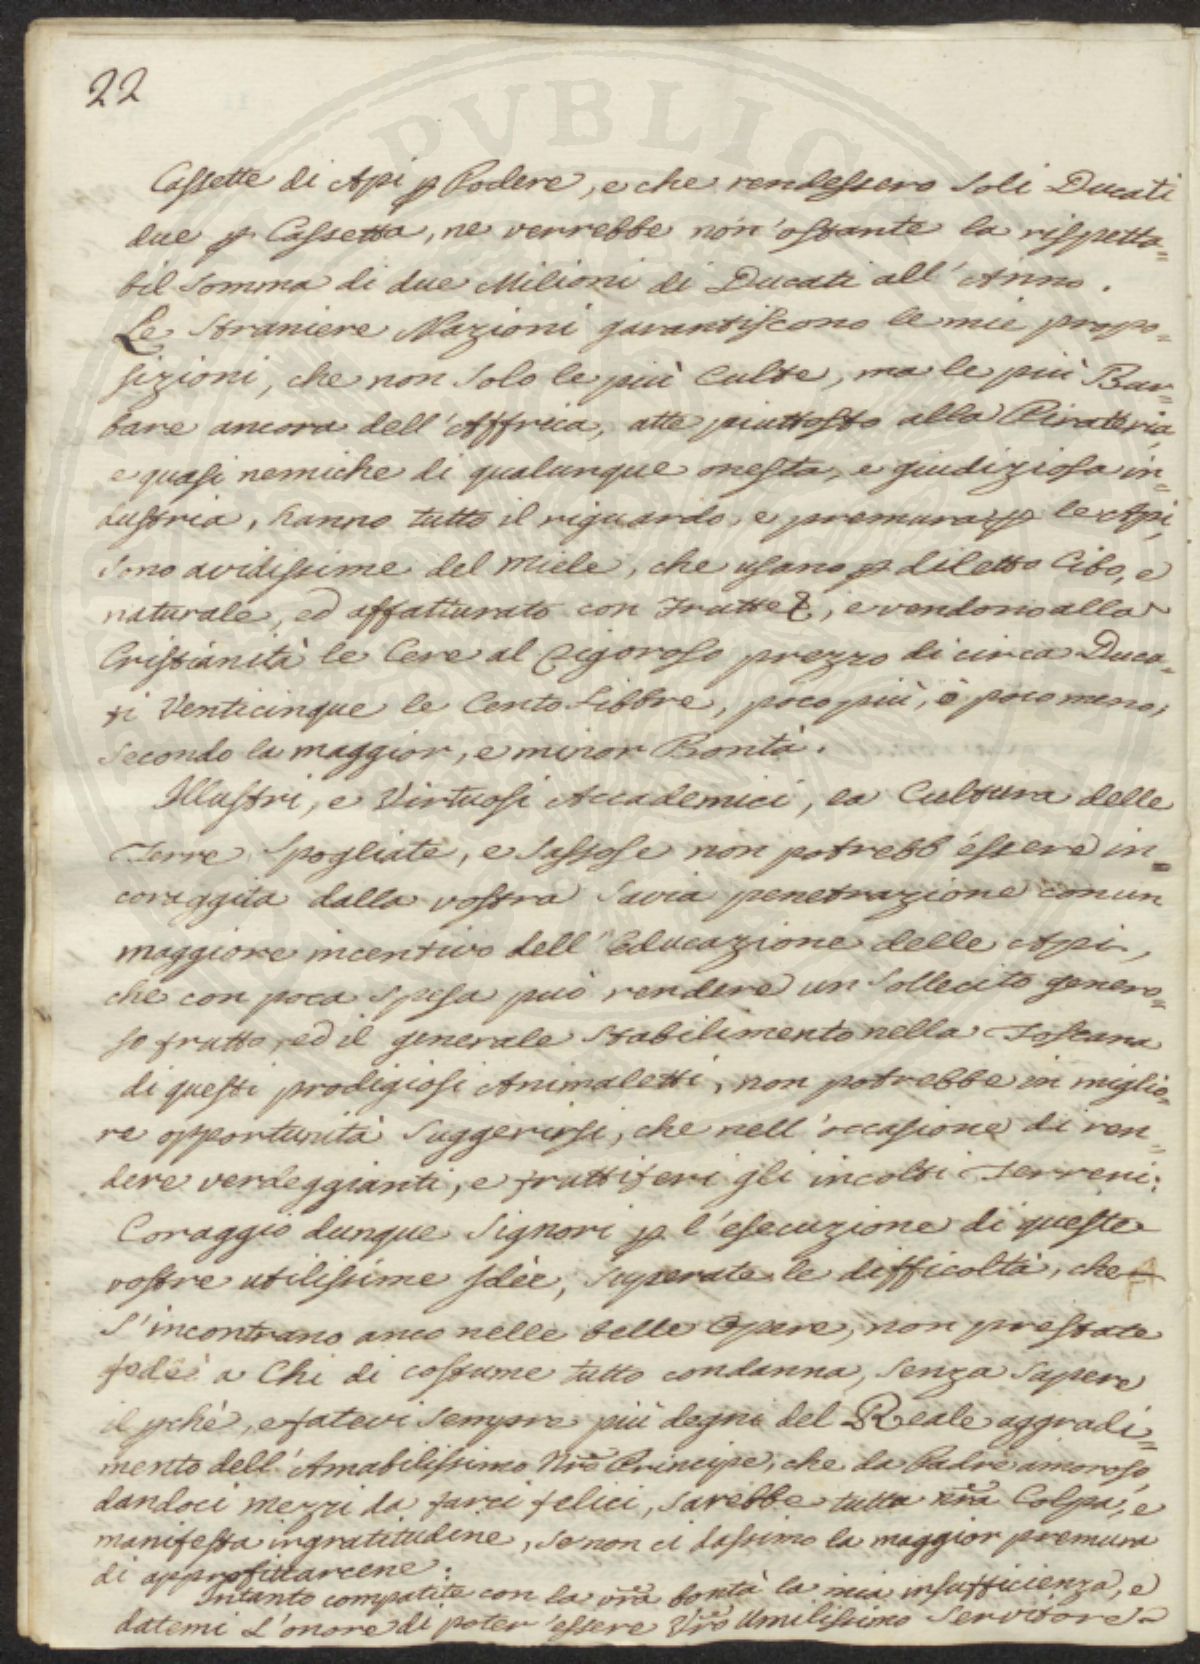 22
Cassette di Api p Podere, e che rendessero soli Ducati
due p Cassetta, ne verrebbe non'ostante la rispetta=
bil Somma di due Milioni di Ducati all'Anno.
Le Straniere Nazioni garantiscono le mie propo=
sizioni, che non solo le più Culte, ma le più Bar=
bare ancora dell'Affrica, atte piuttosto alla Pirateria,
e quasi nemiche di qualunque onesta, e giudiziosa in=
dustria, hanno tutto il riguardo, e premura p le Api,
sono avidissime del Miele, che usano p diletto Cibo, e
naturale, ed affatturato con Frutte &, e vendono alla
Cristianità le Cere al Rigoroso prezzo di circa Duca=
ti Venticinque le Cento Libbre, poco più, ò poco meno,
secondo la maggior, e minor Bontà.
Illustri, e Virtuosi Accademici, la Cultura delle
Terre Spogliate, e Sassose non potrebb'éssere in=
coraggita dalla vostra Savia penetrazione con un
maggiore incentivo dell'Educazione delle Api,
che con poca Spesa può rendere un Sollecito genero=
so frutto, ed il generale Stabilimento nella Toscana
di questi prodigiosi Animaletti, non potrebbe in miglio=
re opportunità Suggerirsi, che nell'occasione di ren=
dere verdeggianti, e fruttiferi gli incolti Terreni:
Coraggio dunque Signori p l'esecuzione di queste
vostre utilissime Idèe, Superate le difficoltà, che
S'incontrano anco nelle belle Opere, non prestate
fede a Chi di costume tutto condanna, senza Sapere
il pchè, e fatevi sempre più degni del Reale aggradi=
mento dell'Amabilissimo Nro Principe, che da Padre amoroso,
dandoci mezzi da farci felici, sarebbe tutta nra Colpa, e
manifesta ingratitudine, se non ci dassimo la maggior premura
di approfittarcene:
Intanto compatite con la vra bontà la mia insufficienza, e
datemi L'onore di poter'essere Vro Umilissimo Servitore